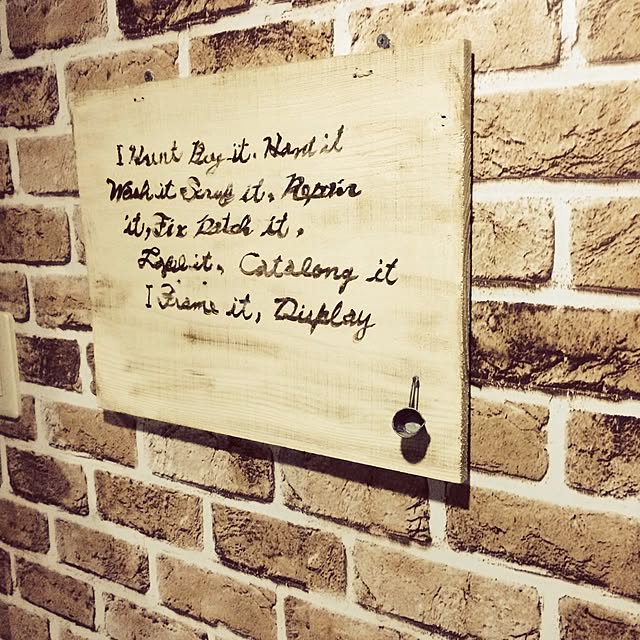 I Hunt Buy it. Hand it
Wash it Scrub it. Repair
it, Fix Patch it,
Label it, Catalong it
I Frame it, Display